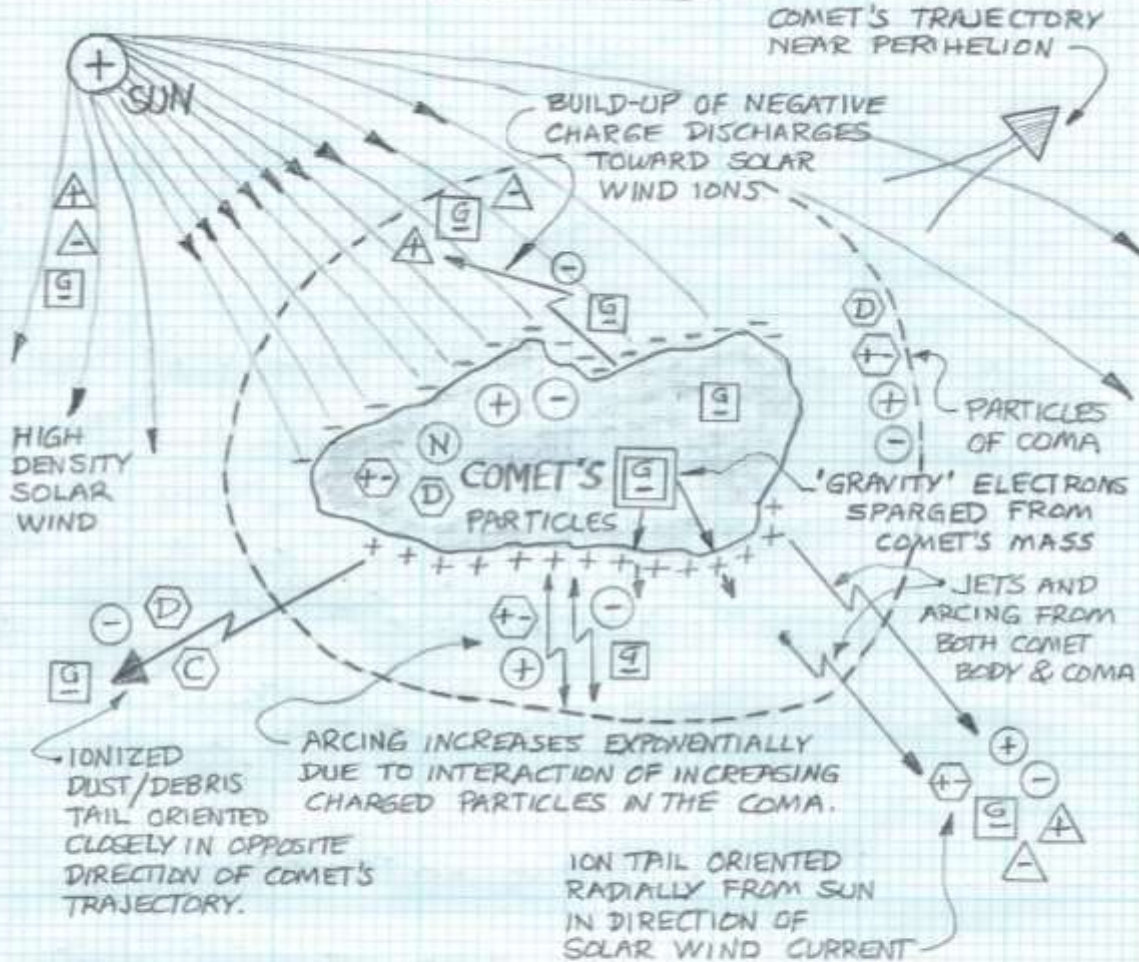 COMET'S TRAJECTORY
NEAR PERIHELION
+
SUN
BUILD-UP OF NEGATIVE
CHARGE DISCHARGES
TOWARD SOLAR
WIND IONS
+
-
G
G
-
+
-
G
HIGH
DENSITY
SOLAR
WIND
D
+-
+
-
PARTICLES
OF COMA
+
-
G
N
+-
D
COMET'S
PARTICLES
G
'GRAVITY' ELECTRONS
SPARGED FROM
COMET'S MASS
JETS AND
ARCING FROM
BOTH COMET
BODY & COMA
-
D
G
C
+-
+
-
G
IONIZED
DUST/DEBRIS
TAIL ORIENTED
CLOSELY IN OPPOSITE
DIRECTION OF COMET'S
TRAJECTORY.
ARCING INCREASES EXPONENTIALLY
DUE TO INTERACTION OF INCREASING
CHARGED PARTICLES IN THE COMA.
ION TAIL ORIENTED
RADIALLY FROM SUN
IN DIRECTION OF
SOLAR WIND CURRENT
+
+-
-
G
+
-